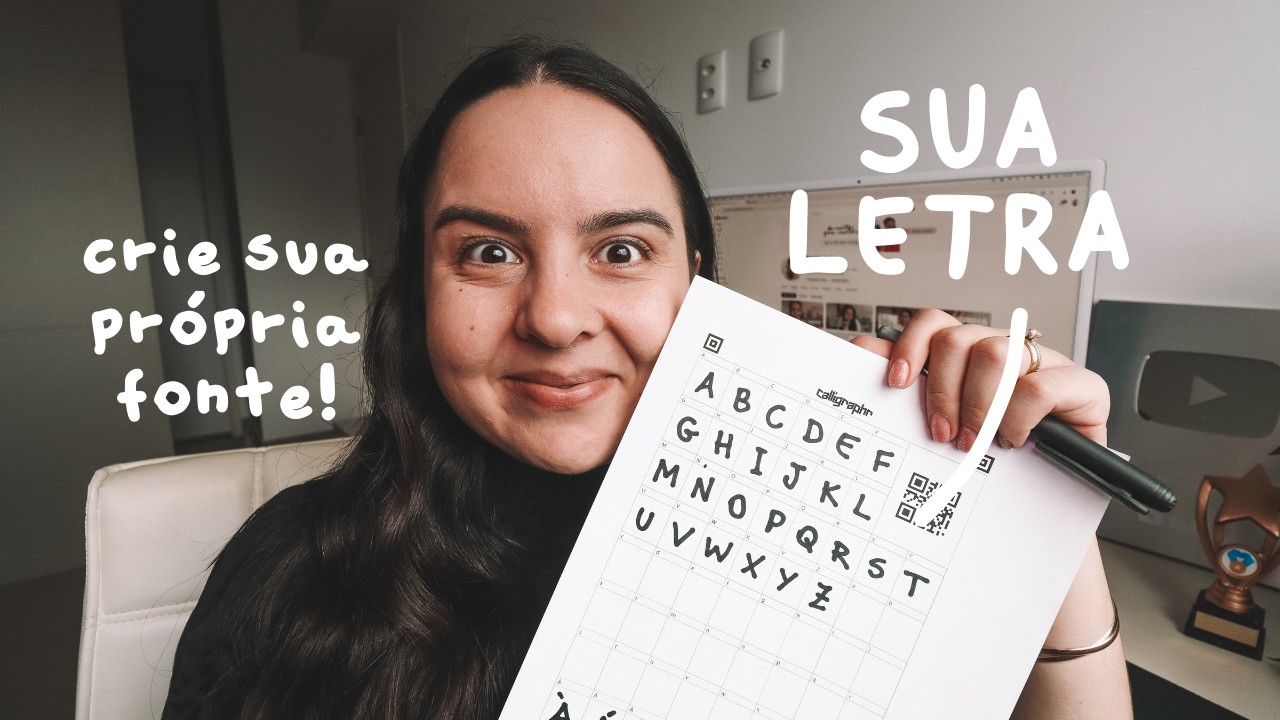 crie sua
própria
fonte!
SUA
LETRA
calligraphr
A B C D E F
G H I J K L
M N O P Q R S T
U V W X Y Z